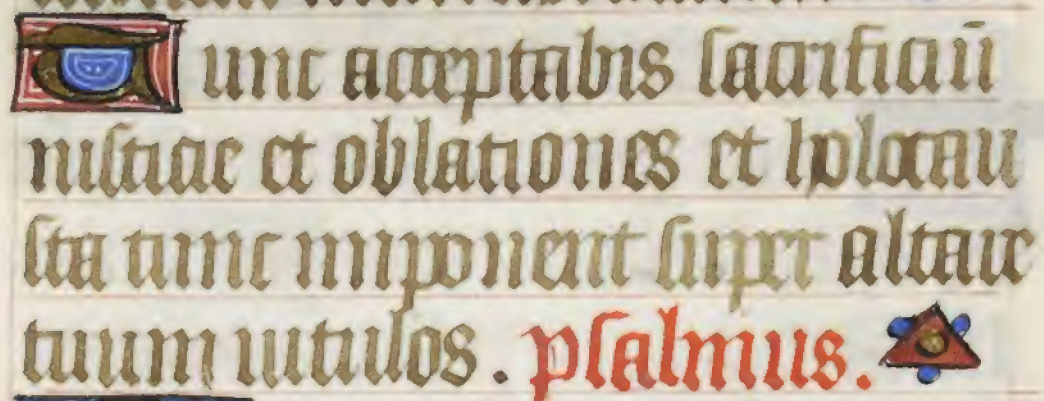 Tunc acceptabis sacrificiū
iusticie et oblationes et holocau
sta tunc imponent super altare
tuum uitulos. psalmus.